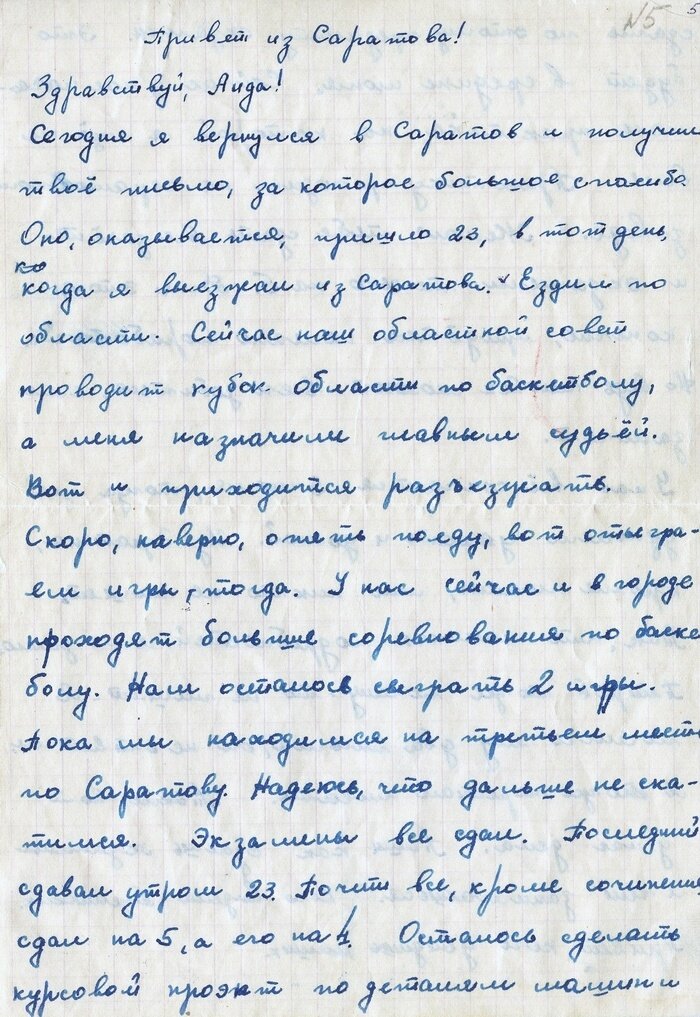 N5 5
Привет из Саратова!
Здравствуй, Аида!
Сегодня я вернулся в Саратов и получил
твоё письмо, за которое большое спасибо
Оно, оказывается, пришло 23, в тот день,
когда я выезжал из Саратова. Ездил по
области. Сейчас наш областной совет
проводит кубок области по баскетболу,
а меня назначили главным судьёй.
Вот и приходится разъезжать.
Скоро, наверно, опять поеду, вот отыгра-
ем игры, тогда. У нас сейчас и в городе
проходят большие соревнования по баске
болу. Нам осталось сыграть 2 игры.
Пока мы находимся на третьем месте
по Саратову. Надеюсь, что дальше не ска-
тимся. Экзамены все сдал. Последний
сдавал утром 23. Почти все, кроме сочинения
сдал на 5, а его на 4. Осталось сделать
курсовой проэкт по деталям машин и